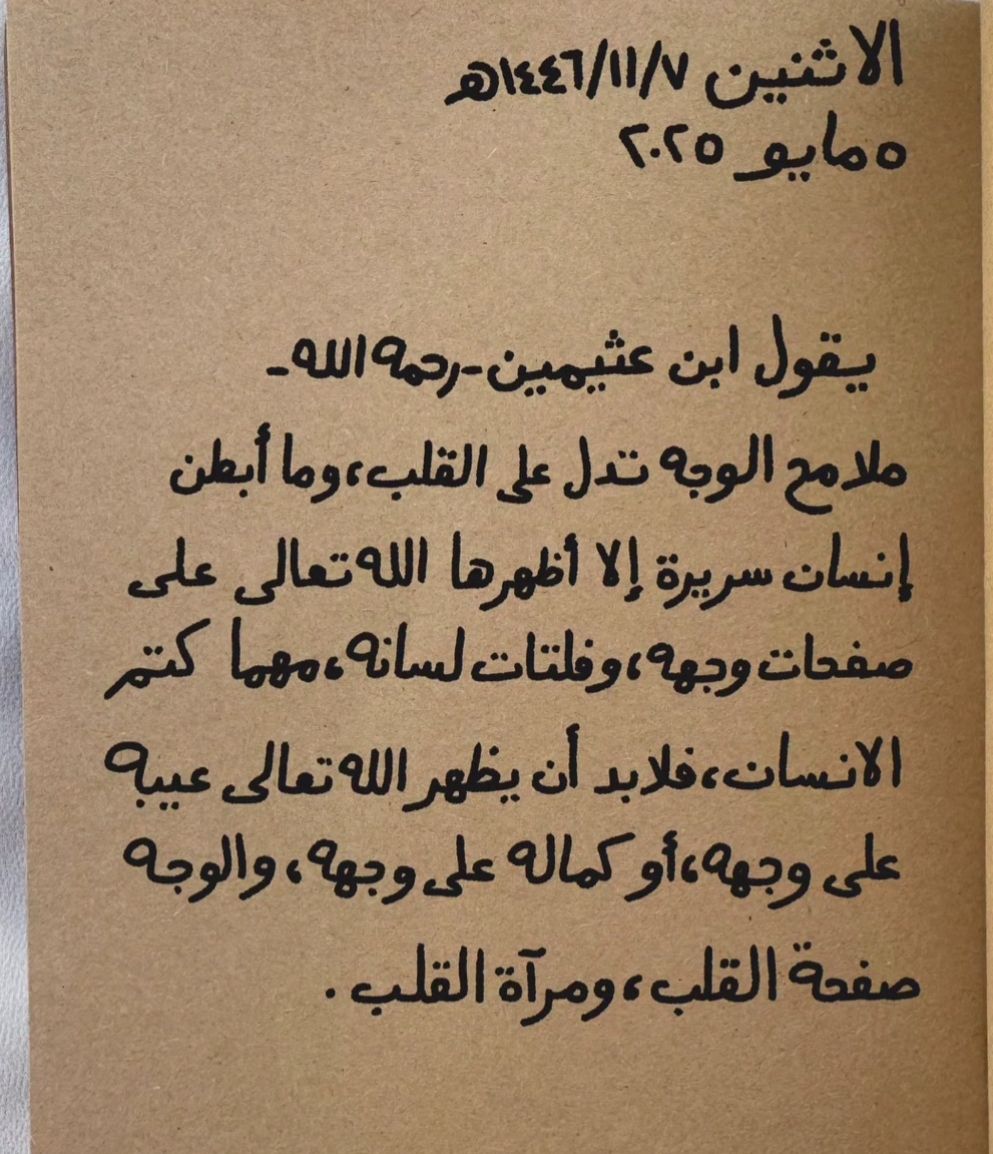 الاثنين ١٤٤٦/١١/٧هـ
٥ مايو ٢٠٢٥
يقول ابن عثيمين -رحمه الله-
ملامح الوجه تدل على القلب، وما أبطن
إنسان سريرة إلا أظهرها الله تعالى على
صفحات وجهه، وفلتات لسانه، مهما كتم
الانسان، فلابد أن يظهر الله تعالى عيبه
على وجهه، أو كماله على وجهه، والوجه
صفحة القلب، ومرآة القلب.